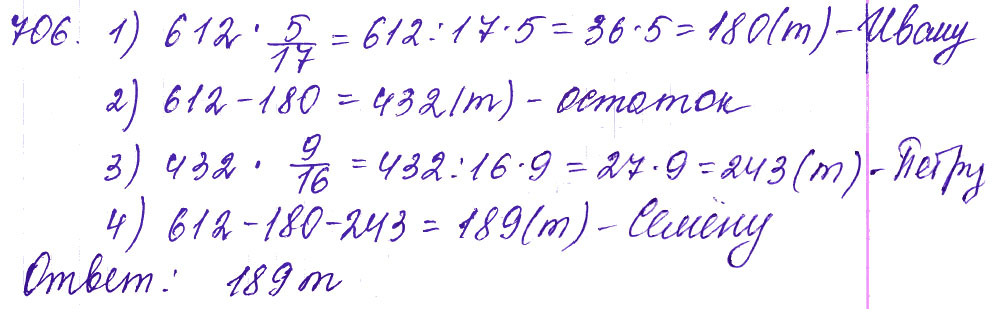 706. 1) 612 · 5/17 = 612 : 17 · 5 = 36 · 5 = 180 (т) – Ивану
2) 612 – 180 = 432 (т) – остаток
3) 432 · 9/16 = 432 : 16 · 9 = 27 · 9 = 243 (т) – Петру
4) 612 – 180 – 243 = 189 (т) – Семёну
Ответ: 189 т